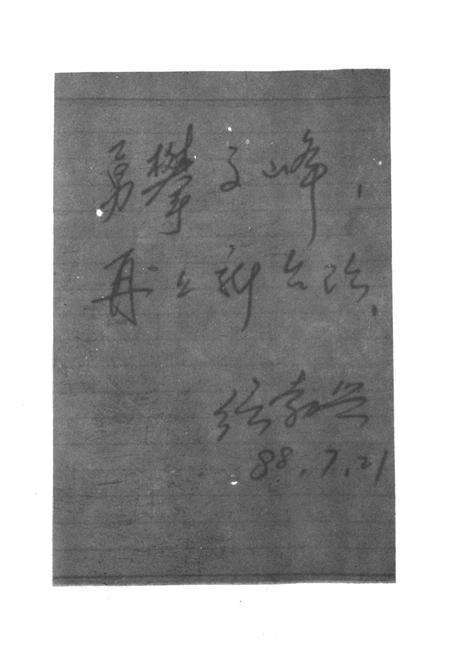 勇攀高峰，
再上新台阶.
88.7.21